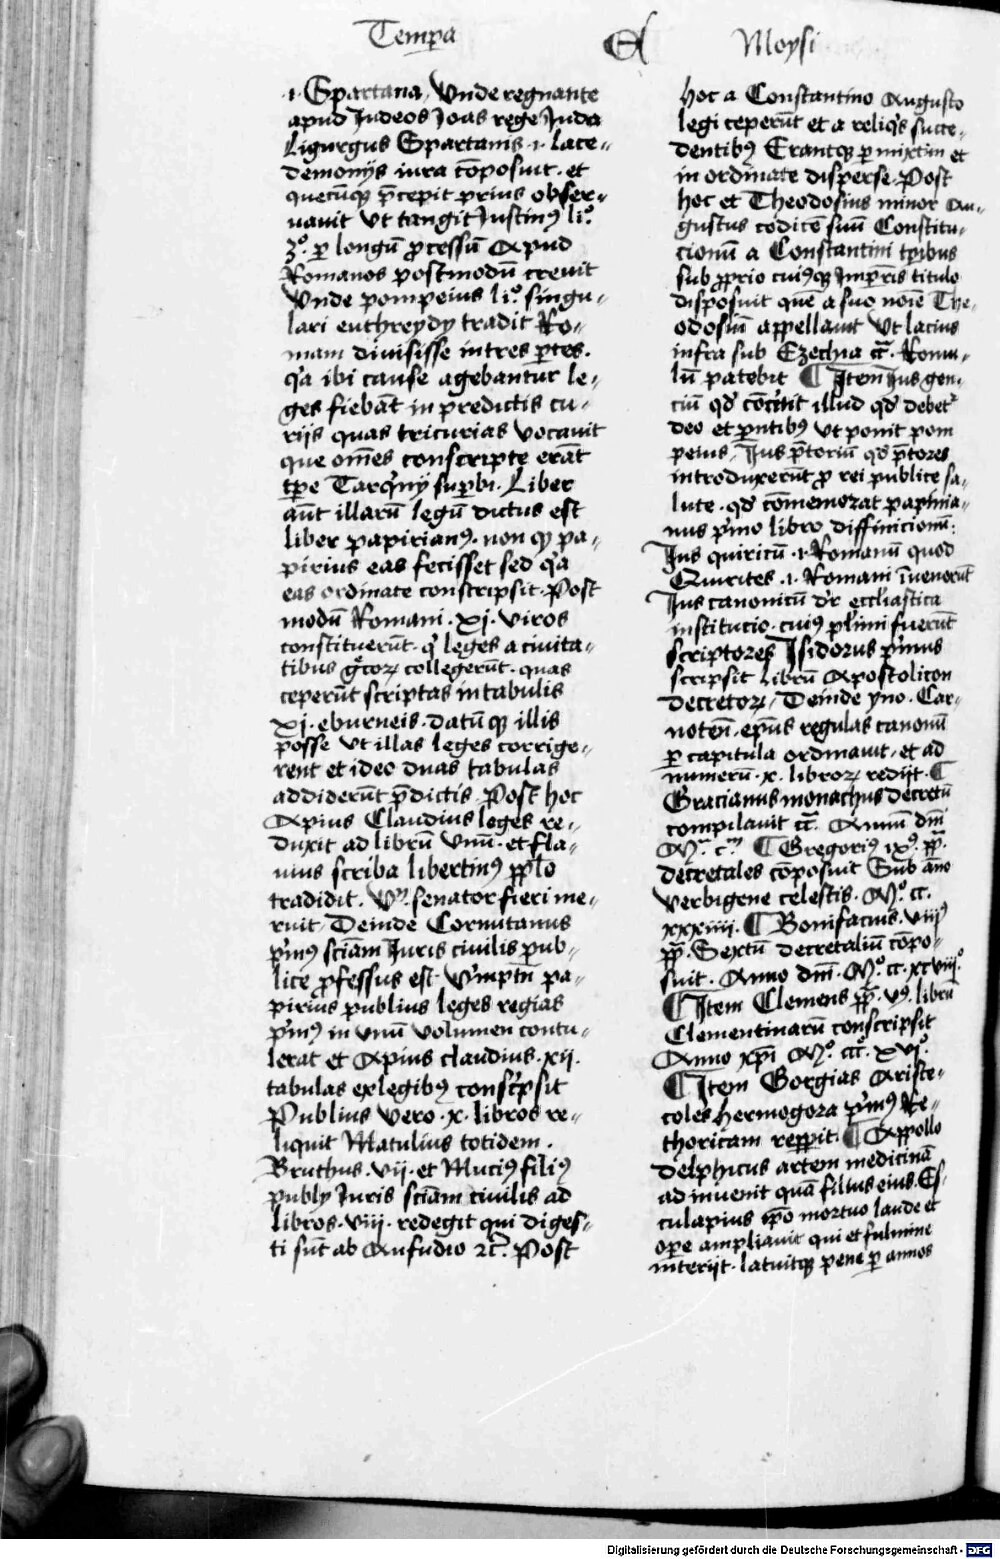 Temp̅a
Moysi
.i. Spartana, Unde regnante
apud Judeos Joas rege Juda
Ligurgus Spartanis .i. lace-
demonijs iura co̅posuit. et
quecu̅q̨ p̅cepit prius obser-
uauit Ut tangit Justin9 li.º
3.º p̱ longu̅ ꝓcessu̅ Apud
Romanos postmodu̅ creuit
Unde pompeius li.º singu-
lari enthreydy tradit Ro-
mam diuisisse in tres p̱tes.
q'a ibi cause agebantur le-
ges fieba̅t in predictis cu-
rijs quas tricurias vocauit
que om̅es conscripte era̅t
tp̅e Tarq'nij sup̱bi. Liber
au̅t illaru̅ legu̅ dictus est
liber papirian9. non q̨ pa-
pirius eas fecisset sed q'a
eas ordinate conscripsit. Post
modu̅ Romani .xj. viros
constitueru̅t. q' leges a ciuita-
tibus g̊coꝝ collegeru̅t. quas
ceperu̅t scriptas in tabulis
xj. eburneis. datu̅q̨ illis
posse ut illas leges corrige-
rent et ideo duas tabulas
addideru̅t p̅dictis. Post hoc
Apius Claudius leges re-
duxit ad libru̅ vnu̅. et fla-
uius scriba libertin9 pp̅lo
tradidit. senator fieri me-
ruit Deinde Cornutanus
p'm9 scia̅m Juris ciuilis pub-
lice ꝓfessus est. pa-
pirius publius leges regias
p'm9 in vnu̅ volumen contu-
lerat et Apius claudius .xij.
tabulas ex legib9 consc'psit
Publius vero .x. libros re-
liquit Matulius totidem.
Bruthus .vij. et Muci9 fili9
publij Juris scia̅m ciuilis ad
libros .viij. redegit qui diges-
ti su̅t ab Aufudio ꝛc̅. Post
hoc a Constantino Augusto
legi ceperu̅t et a reliq's succe-
dentib9 Erantq̨ p̱mixtim et
in ordinate disperse. Post
hoc et Theodosius minor Au-
gustus codice̅ suu̅ Constitu-
cionu̅ a Constantini tp̅ibus
sub ꝓprio cui9q̨ Jmp̱ris titulo
disposuit que̅ a suo no̅ie The-
odosiu̅ appellauit Ut lacius
infra sub Ezechia cc̅. Romu-
lu̅ patebit ¶ Jtem Jus gen-
ciu̅ qd' illud qd' debet'
deo et p̱ntib9 ut ponit pom
peius, Jus p̅toriu̅ qd' p̅tores
introduxeru̅t ꝓ rei publice sa-
lute. qd' co̅memorat papinia-
nus p'mo libro diffinicionu̅:
Jus quiricu̅ .i. Romanu̅ quod
Quirites .i. Romani i̅uenoru̅t
Jus canonicu̅ d'r eccl̅iastica
institucio. cui9 p̱limi fueru̅t
scriptores Jsidorus p'mus
scripsit libru̅ Apostolicon
decretoꝝ, Deinde yuo. Car-
noten̅. ep̅us regulas canonu̅
p̱ capitula ordinauit. et ad
numeru̅ .x. libroꝝ redijt. ¶
Gracianus monachus decretu̅
compilauit cc̅. Annu̅ dn̅i
M.º c.º ¶ Gregori9 ix9. pp̅.
decretales co̅posuit Sub a̅no
verbigene celestis. M.º cc.
xxxiiij. ¶ Bonifacius. viij9
pp̅. Sextu̅ decretaliu̅ co̅po-
suit. Anno dn̅i. M.º cc. xcviij.º
¶ Jtem Clemens pp̅. v9. libru̅
Clementinaru̅ conscripsit
Anno xp̅i M.º ccc.º xvj.º
¶ Jtem Gorgias Ariste-
coles hermogora p'm9 Re-
thoricam repp̱it. ¶ Appollo
delphicus artem medicina̅
ad inuenit qua̅ filius eius. Es-
culapius ip̅o mortuo laude et
op̱e ampliauit qui et fulmine
interijt. latuitq̨ pene p̱ annos
Digitalisierung gefördert durch die Deutsche Forschungsgemeinschaft - DFG